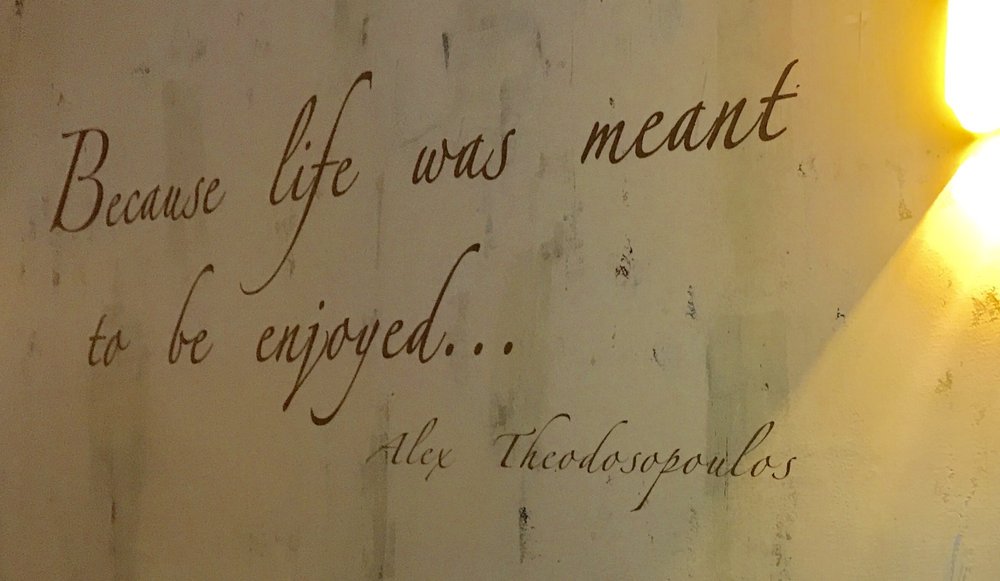 Because life was meant
to be enjoyed...
Alex Theodosopoulos